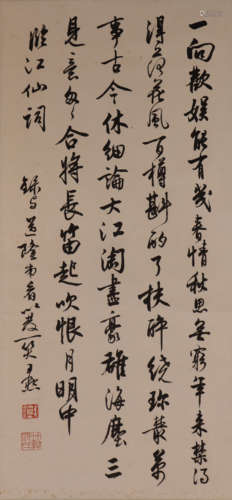 一向歡娛能有幾春情秋思無窮年來禁得
得落花風百樽斟的了扶醉繞珍叢萬
事古今休細論大江淘盡豪雄海塵三
見意匆匆合將長笛起吹恨月明中
臨江仙詞
錄与道隆 尹默